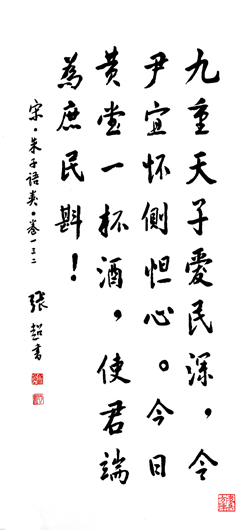 九重天子愛民深，令
尹宜怀惻怛心。今日
黄堂一杯酒，使君端
為庶民斟！
宋·朱子語类·卷一三二
張超書